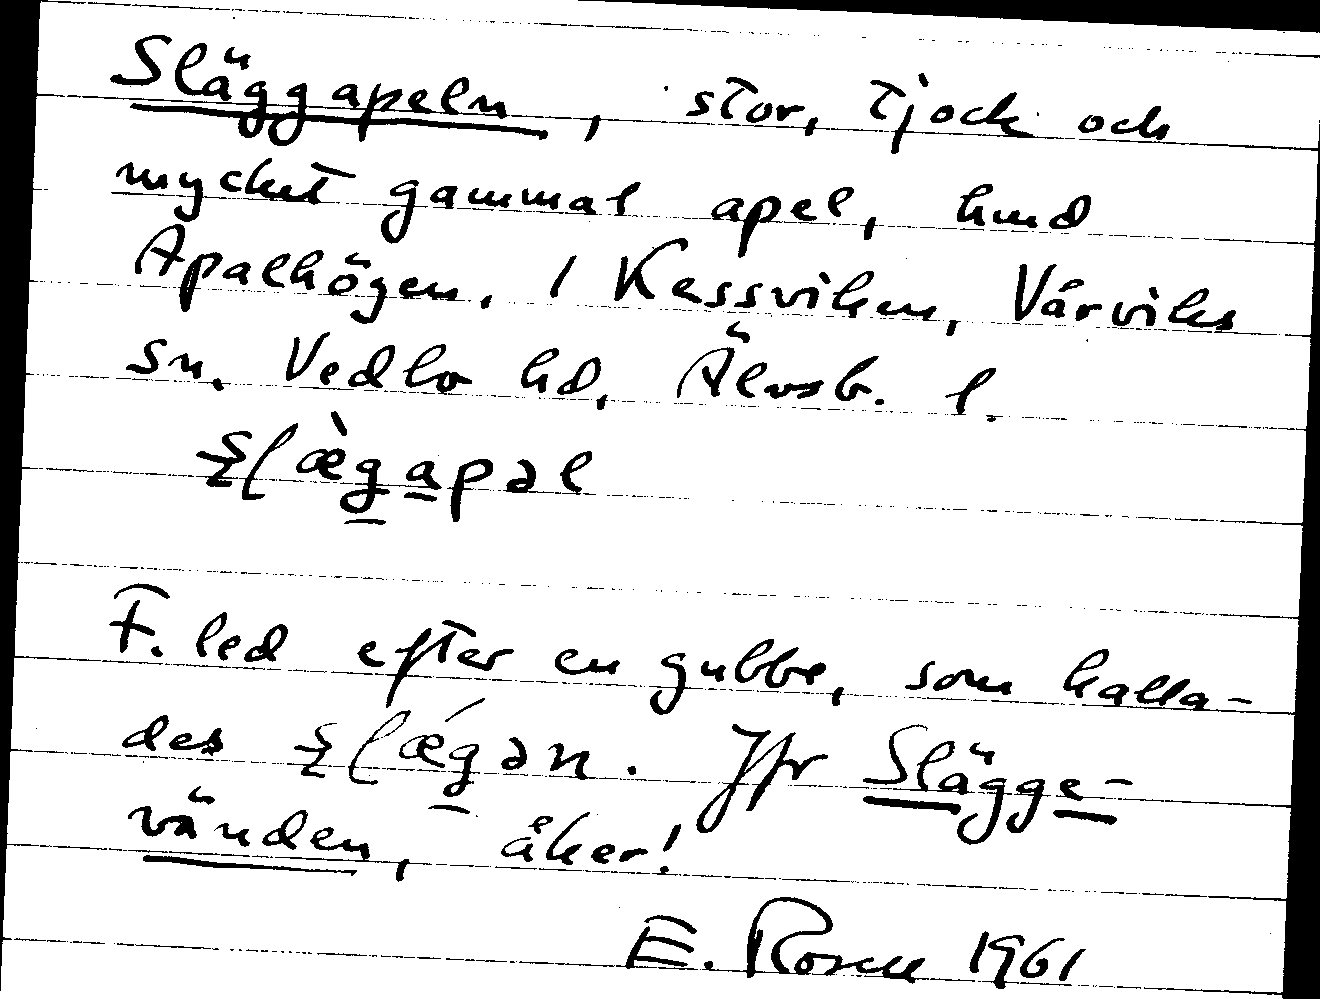 Släggapeln, stor, tjock och
mycket gammal apel, hmd
Apalhögen. / Kessviken, Vårviks
sn. Vedbo hd, Älvsb. l.
ʂlæ̀gapəl
F. led efter en gubbe, som kalla-
des ʂlǽgən. Jfr Slägge-
vänden, åker!
E. Rosell 1961